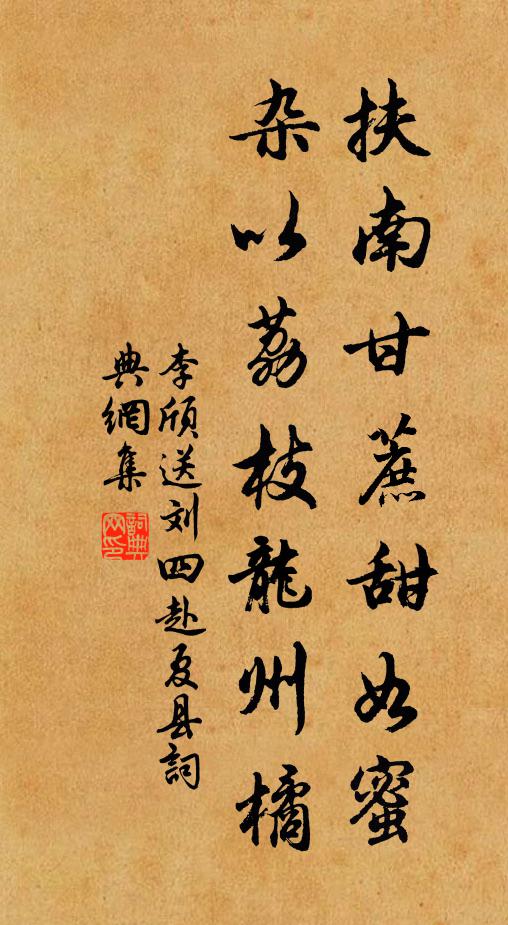 扶南甘蔗甜如蜜
杂以荔枝龍州橘
李颀送刘四赴夏县詞
典網集
詞典网印